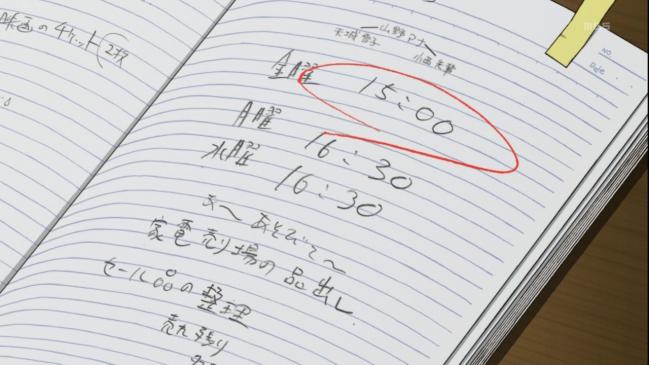 映画のチケット(2枚
山野アナ
天城雪子
小西先輩
金曜 15:00
月曜 16:30
水曜 16:30
あ〜あそびて〜
家電売り場の品出し
セール品の整理
売れ残り
No.
Date
MBS